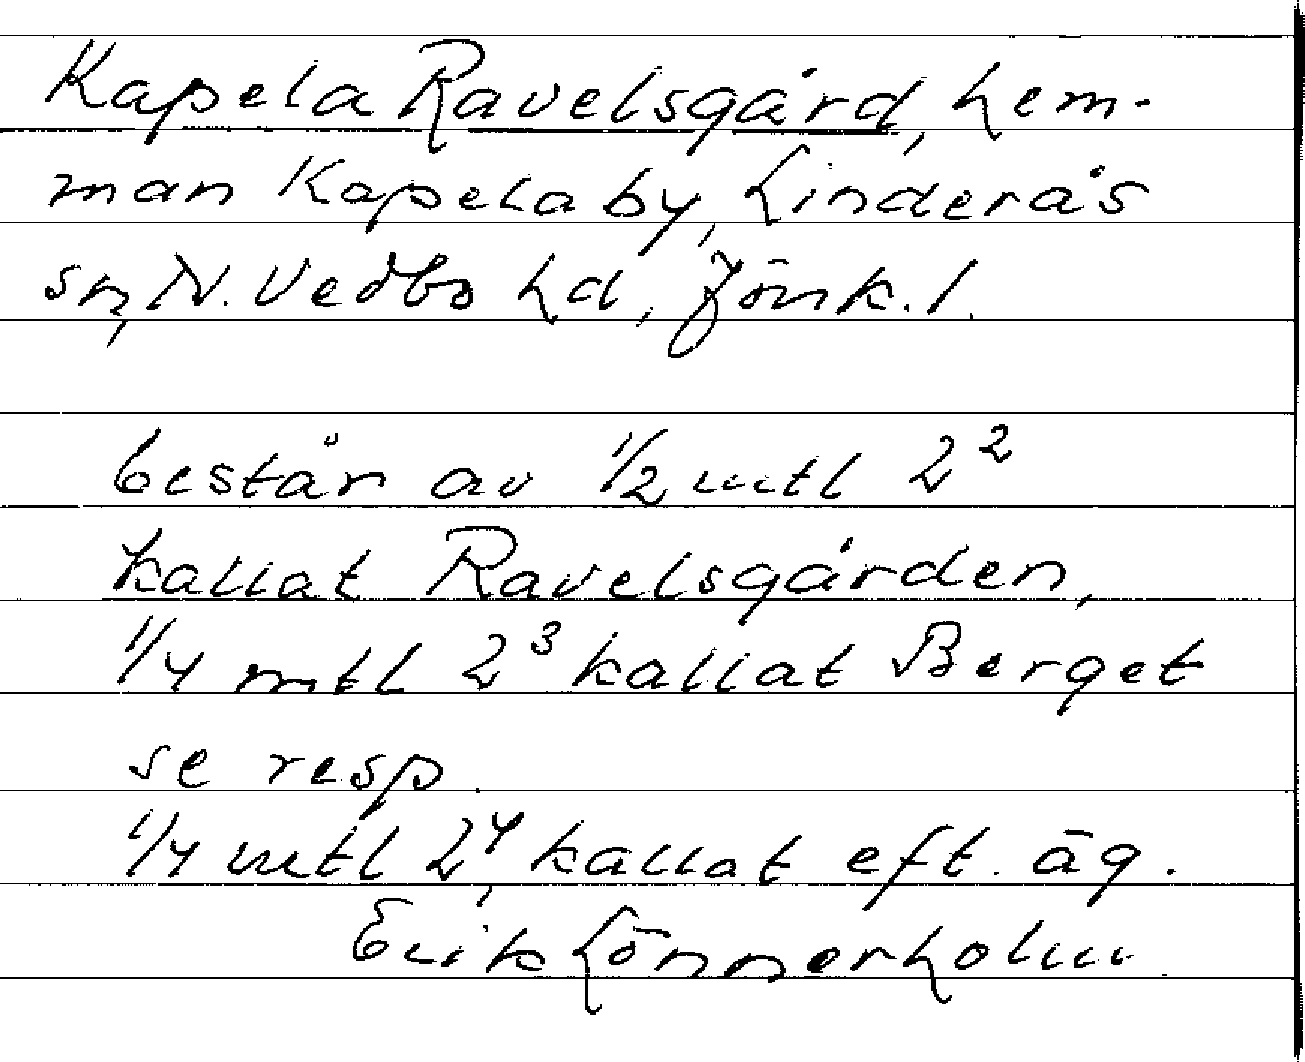 Kapela Ravelsgård, hem-
man Kapela by, Linderås
sn, N. Vedbo hd, Jönk. l.
består av 1/2 mtl 2²
kallat Ravelsgården,
1/4 mtl 2³ kallat Berget
se resp.
1/4 mtl 2⁴, kallat eft. äg.
Erik Lönnerholm.